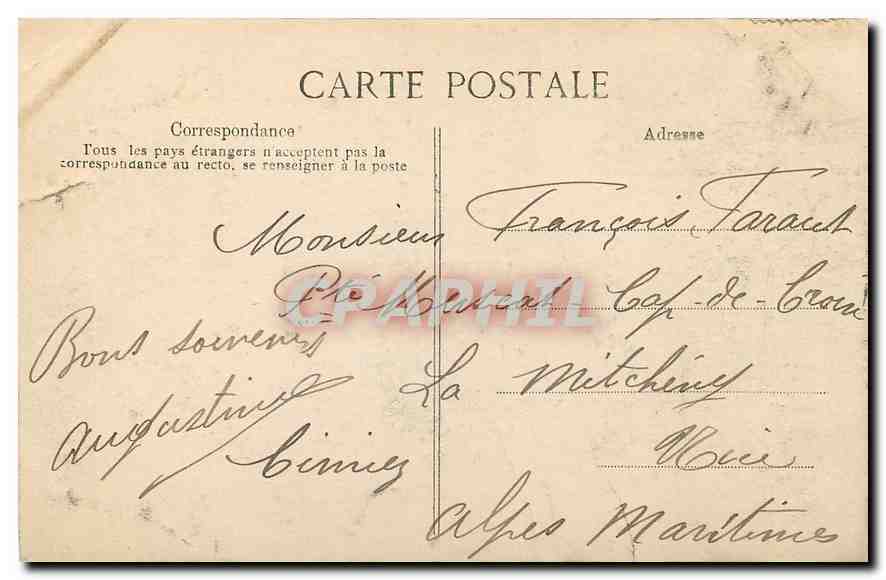 CARTE POSTALE
Correspondance
Tous les pays étrangers n'acceptent pas la
correspondance au recto, se renseigner à la poste
Adresse
Monsieur François Faraut
Pté Muscat - Cap-de-Croix
La Mitchény
Cimiez Nice
Alpes Maritimes
Bons souvenirs
Augustine
CPAPHIL